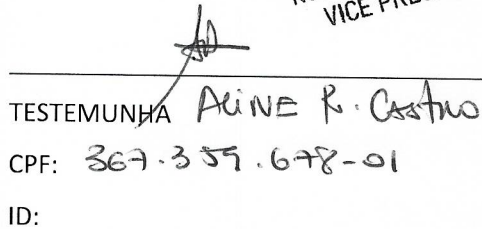 VICE
TESTEMUNHA ALINE R. CASTRO
CPF: 367.359.678-01
ID: